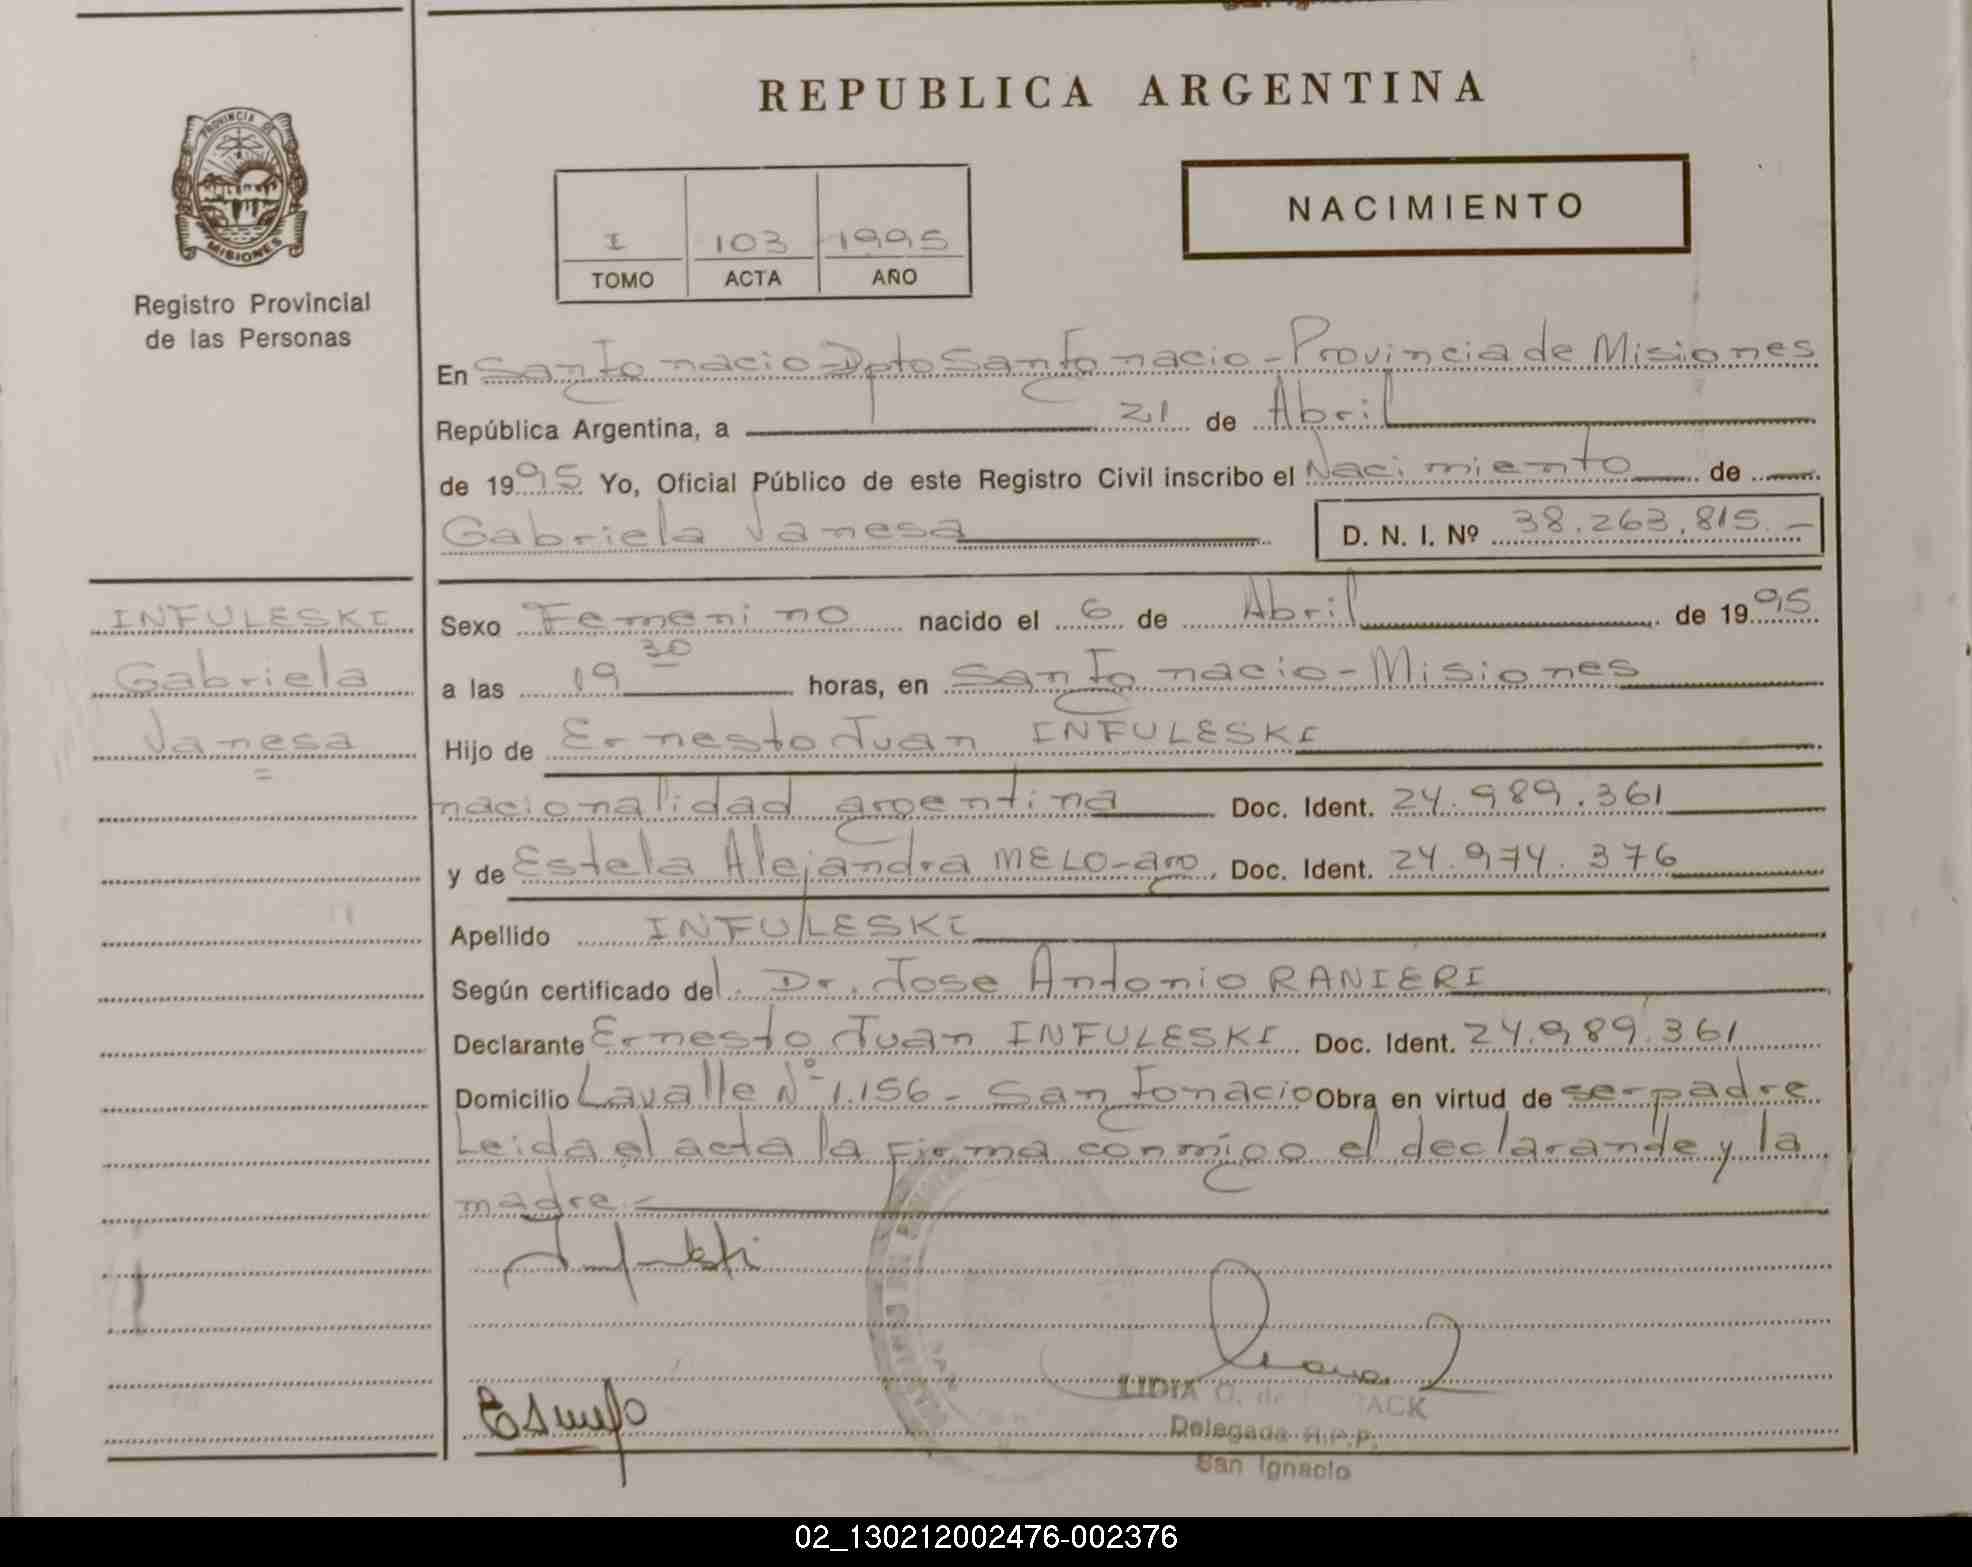 REPUBLICA ARGENTINA
PROVINCIA DE
MISIONES
Registro Provincial
de las Personas
I 103 1995
TOMO ACTA AÑO
NACIMIENTO
En San Ignacio-Dpto San Ignacio-Provincia de Misiones
República Argentina, a 21 de Abril
de 1995 Yo, Oficial Público de este Registro Civil inscribo el Nacimiento de
Gabriela Vanesa D. N. I. Nº 38.263.815.-
INFULESKI
Gabriela
Vanesa
Sexo Femenino nacido el 6 de Abril de 1995
a las 19 30 horas, en San Ignacio-Misiones
Hijo de Ernesto Juan INFULESKI
nacionalidad argentina Doc. Ident. 24.989.361
y de Estela Alejandra MELO-arg. Doc. Ident. 24.974.376
Apellido INFULESKI
Según certificado del Dr. Jose Antonio RANIERI
Declarante Ernesto Juan INFULESKI Doc. Ident. 24.989.361
Domicilio Lavalle Nº 1.156- San Ignacio Obra en virtud de ser padre
Leida el acta la firma conmigo el declarande y la
madre.-
LIDIA
Delegada R.P.P.
San Ignacio
02_130212002476-002376